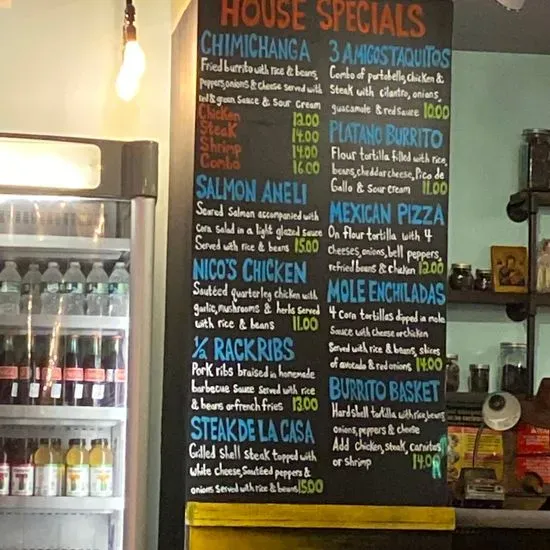 HOUSE SPECIALS
CHIMICHANGA
Fried burrito with rice & beans,
peppers, onions & cheese served with
red & green Sauce & Sour Cream
Chicken 12.00
Steak 14.00
Shrimp 14.00
Combo 16.00
SALMON ANELI
Seared Salmon accompanied with
corn salad in a light glazed sauce
Served with rice & beans 15.00
NICO'S CHICKEN
Sautéed quarter leg chicken with
garlic, mushrooms & herbs served
with rice & beans 11.00
½ RACK RIBS
Pork ribs braised in homemade
barbecue sauce Served with rice
& beans or french fries 13.00
STEAK DE LA CASA
Grilled shell steak topped with
white cheese, Sautéed peppers &
onions Served with rice & beans 15.00
3 AMIGOS TAQUITOS
Combo of portabello, chicken &
steak with cilantro, onions,
guacamole & red sauce 10.00
PLATANO BURRITO
Flour tortilla filled with rice,
beans, cheddar cheese, Pico de
Gallo & Sour cream 11.00
MEXICAN PIZZA
On flour tortilla with 4
cheeses, onions, bell peppers,
refried beans & chicken 12.00
MOLE ENCHILADAS
4 Corn tortillas dipped in mole
Sauce with cheese or chicken
Served with rice & beans, slices
of avocado & red onions 14.00
BURRITO BASKET
Hard shell tortilla with rice, beans,
onions, peppers & cheese
Add chicken, steak, carnitas
or shrimp 14.00